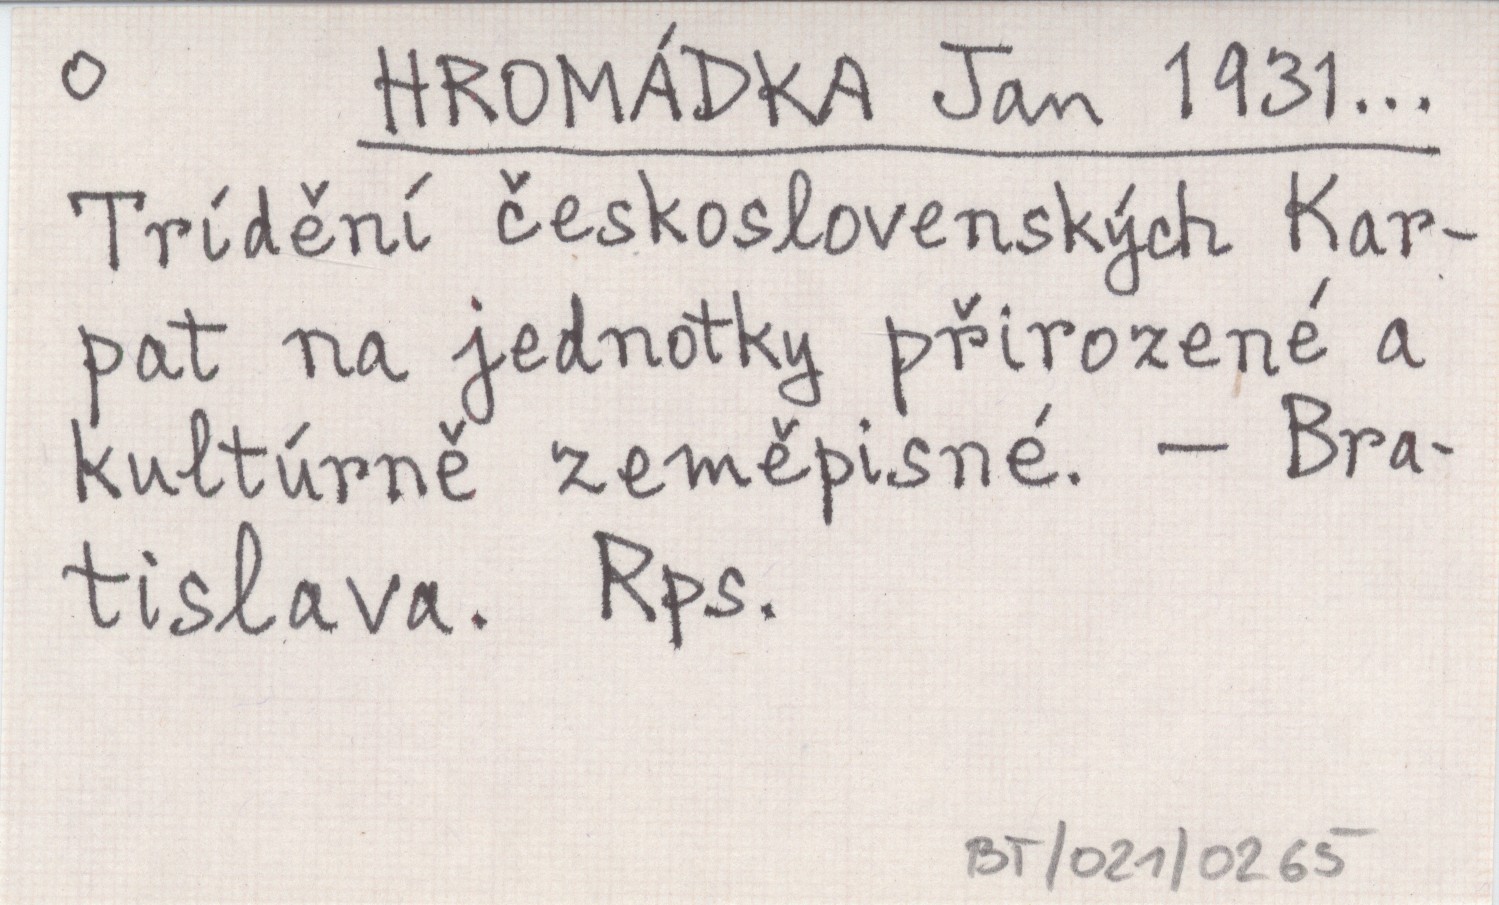 O HROMÁDKA Jan 1931...
Trídění československých Kar-
pat na jednotky přirozené a
kultúrně zeměpisné. – Bra-
tislava. Rps.
BT/021/0265